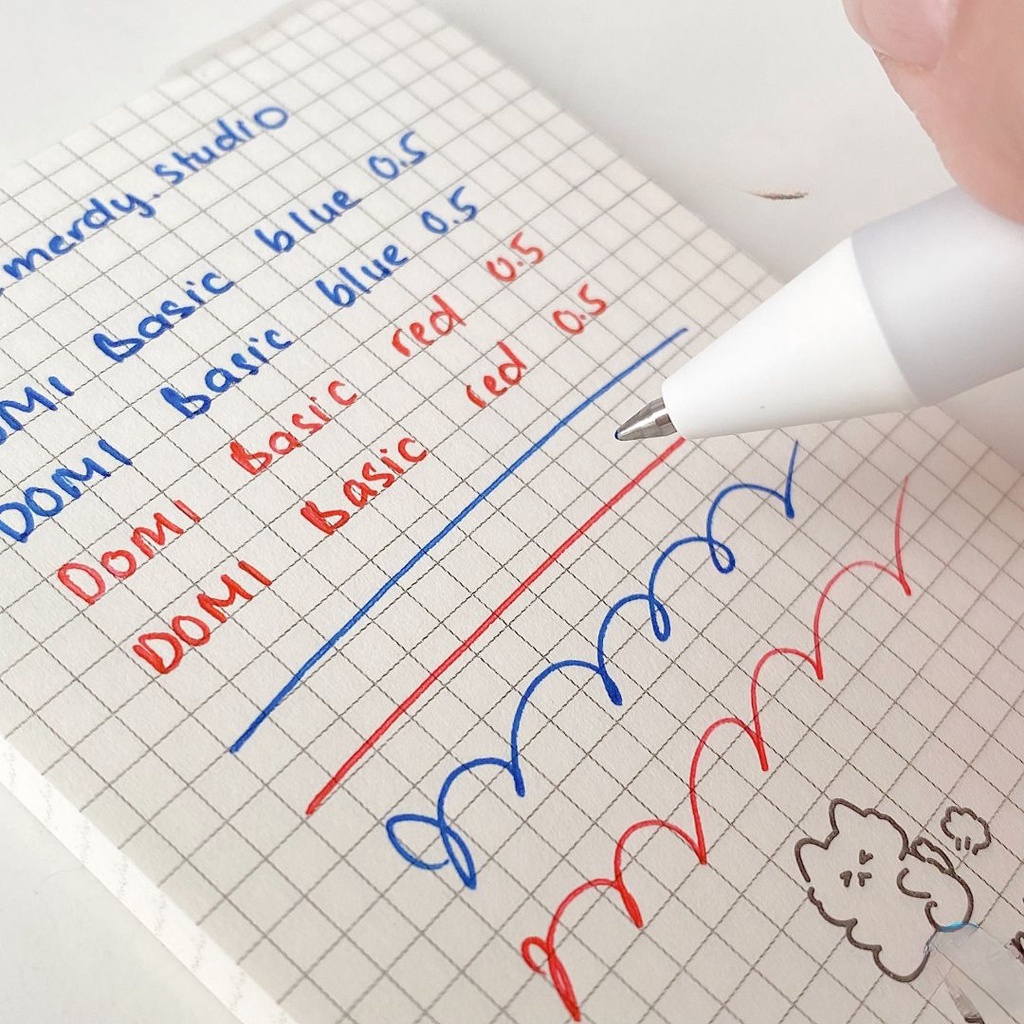 merdy.studio
DOMI Basic blue 0.5
DOMI Basic blue 0.5
DOMI Basic red 0.5
DOMI Basic red 0.5